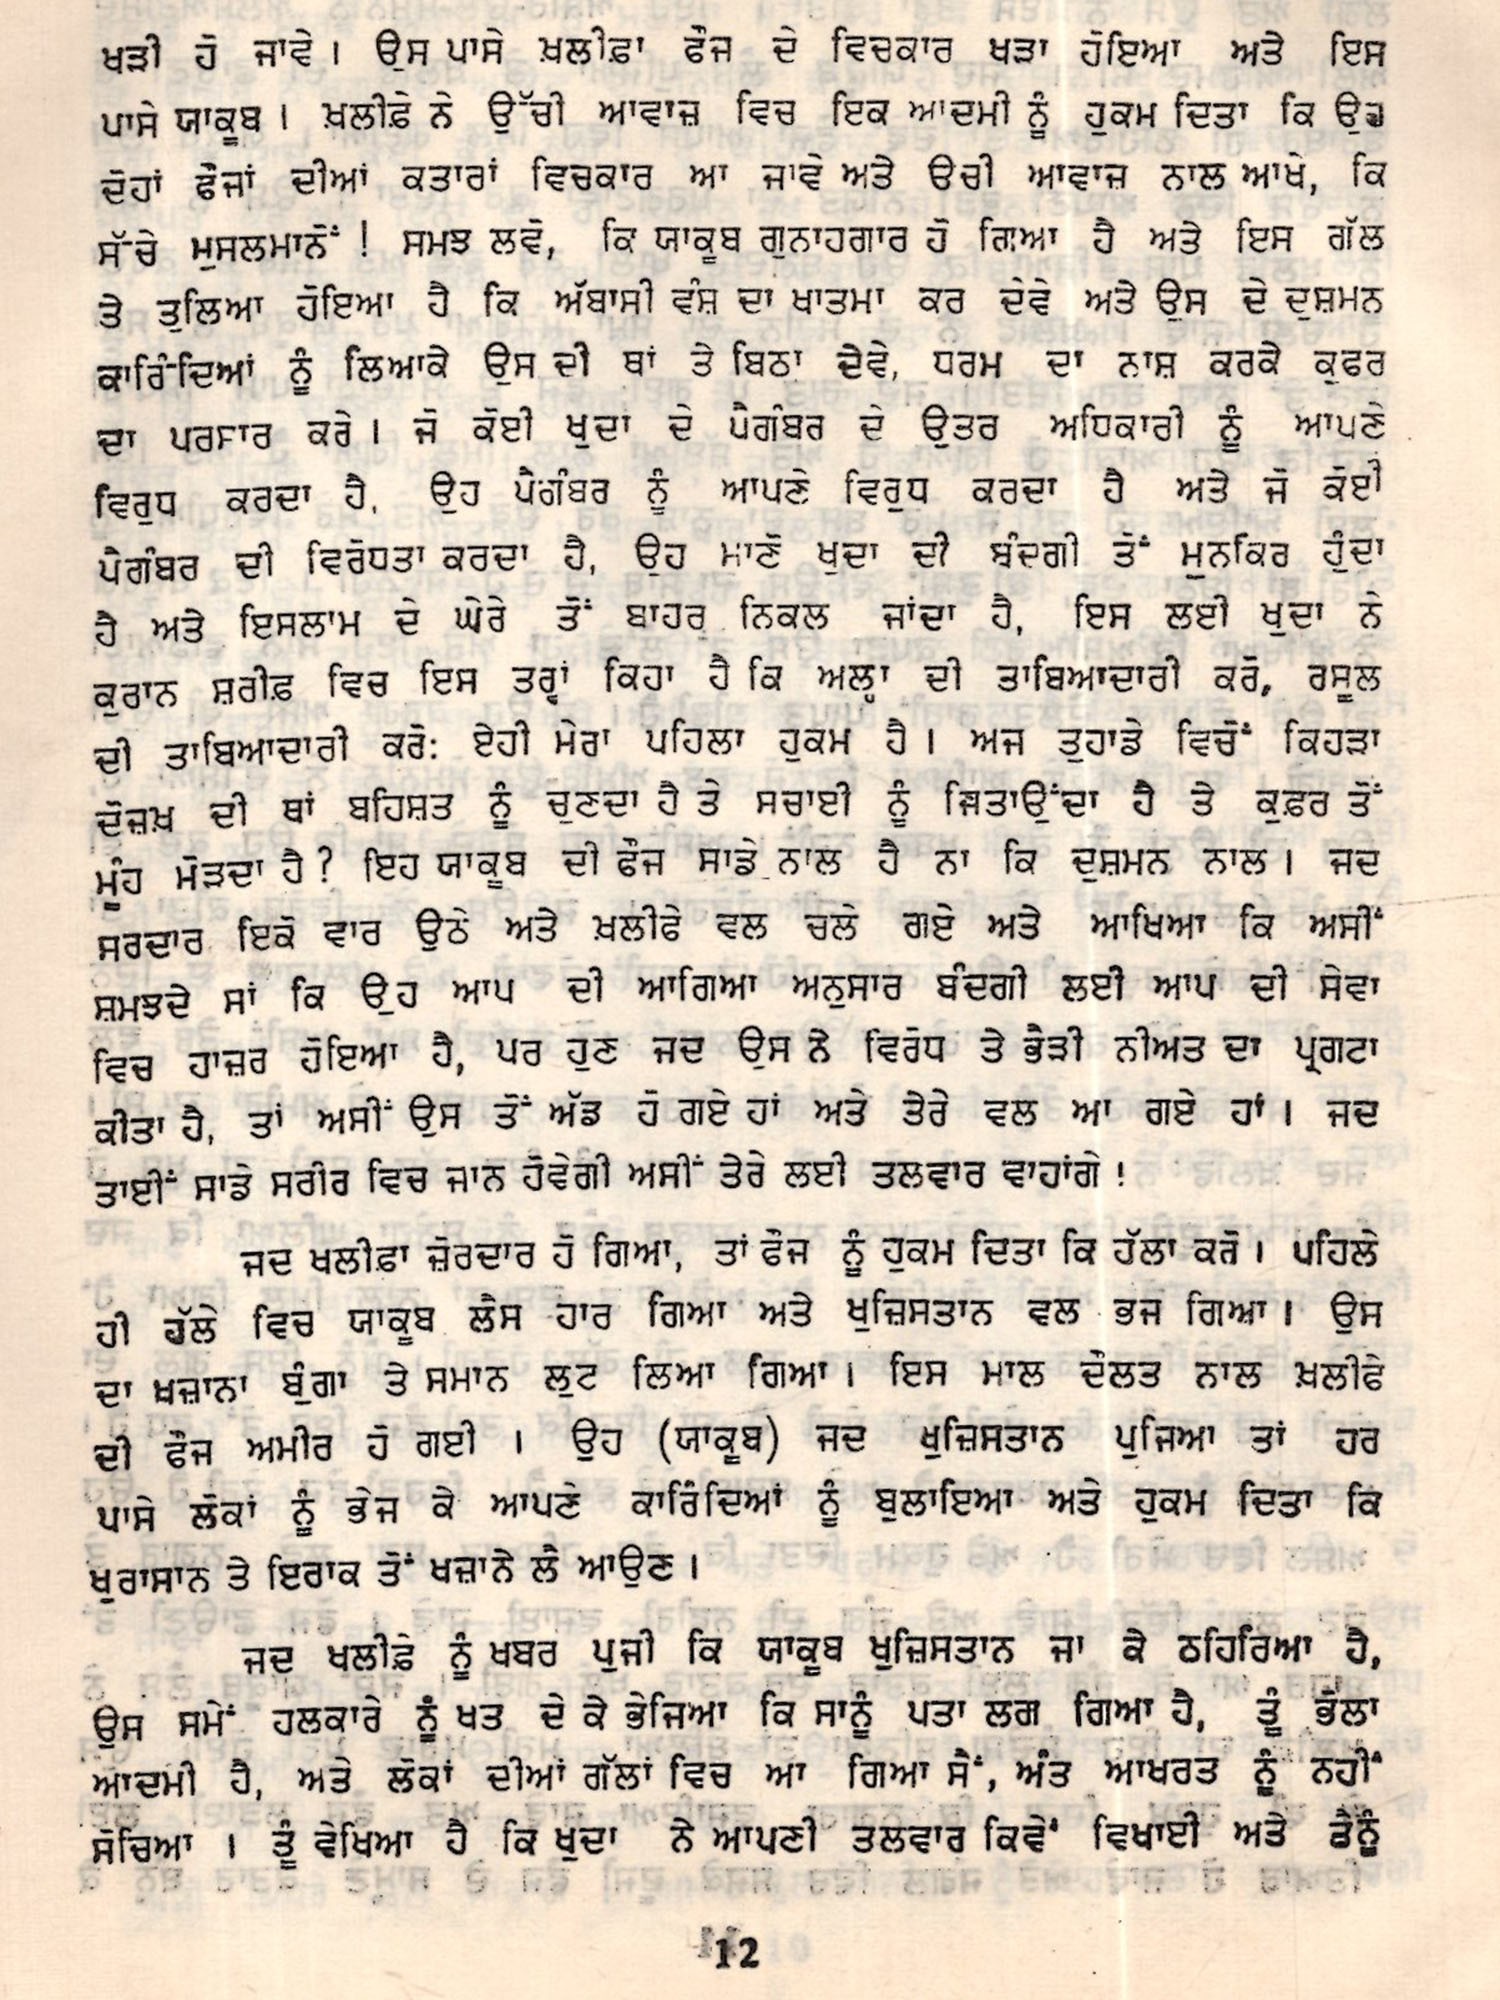 ਖੜੀ ਹੋ ਜਾਵੇ। ਉਸ ਪਾਸੇ ਖ਼ਲੀਫ਼ਾ ਫੌਜ ਦੇ ਵਿਚਕਾਰ ਖੜਾ ਹੋਇਆ ਅਤੇ ਇਸ
ਪਾਸੇ ਯਾਕੂਬ। ਖ਼ਲੀਫ਼ੇ ਨੇ ਉੱਚੀ ਆਵਾਜ਼ ਵਿਚ ਇਕ ਆਦਮੀ ਨੂੰ ਹੁਕਮ ਦਿਤਾ ਕਿ ਉਹ
ਦੋਹਾਂ ਫੌਜਾਂ ਦੀਆਂ ਕਤਾਰਾਂ ਵਿਚਕਾਰ ਆ ਜਾਵੇ ਅਤੇ ਉਚੀ ਆਵਾਜ਼ ਨਾਲ ਆਖੇ, ਕਿ
ਸੱਚੇ ਮੁਸਲਮਾਨੋਂ ! ਸਮਝ ਲਵੋ, ਕਿ ਯਾਕੂਬ ਗੁਨਾਹਗਾਰ ਹੋ ਗਿਆ ਹੈ ਅਤੇ ਇਸ ਗੱਲ
ਤੇ ਤੁਲਿਆ ਹੋਇਆ ਹੈ ਕਿ ਅੱਬਾਸੀ ਵੰਸ਼ ਦਾ ਖਾਤਮਾ ਕਰ ਦੇਵੇ ਅਤੇ ਉਸ ਦੇ ਦੁਸ਼ਮਨ
ਕਾਰਿੰਦਿਆਂ ਨੂੰ ਲਿਆਕੇ ਉਸ ਦੀ ਥਾਂ ਤੇ ਬਿਠਾ ਦੇਵੇ, ਧਰਮ ਦਾ ਨਾਸ਼ ਕਰਕੇ ਕੁਫਰ
ਦਾ ਪਰਸਾਰ ਕਰੇ। ਜੋ ਕੋਈ ਖੁਦਾ ਦੇ ਪੈਗੰਬਰ ਦੇ ਉਤਰ ਅਧਿਕਾਰੀ ਨੂੰ ਆਪਣੇ
ਵਿਰੁਧ ਕਰਦਾ ਹੈ, ਉਹ ਪੈਗੰਬਰ ਨੂੰ ਆਪਣੇ ਵਿਰੁਧ ਕਰਦਾ ਹੈ ਅਤੇ ਜੋ ਕੋਈ
ਪੈਗੰਬਰ ਦੀ ਵਿਰੋਧਤਾ ਕਰਦਾ ਹੈ, ਉਹ ਮਾਣੋ ਖੁਦਾ ਦੀ ਬੰਦਗੀ ਤੋਂ ਮੁਨਕਿਰ ਹੁੰਦਾ
ਹੈ ਅਤੇ ਇਸਲਾਮ ਦੇ ਘੇਰੇ ਤੋਂ ਬਾਹਰ ਨਿਕਲ ਜਾਂਦਾ ਹੈ, ਇਸ ਲਈ ਖੁਦਾ ਨੇ
ਕੁਰਾਨ ਸ਼ਰੀਫ਼ ਵਿਚ ਇਸ ਤਰ੍ਹਾਂ ਕਿਹਾ ਹੈ ਕਿ ਅਲ੍ਹਾ ਦੀ ਤਾਬਿਆਦਾਰੀ ਕਰੋ, ਰਸੂਲ
ਦੀ ਤਾਬਿਆਦਾਰੀ ਕਰੋ: ਏਹੀ ਮੇਰਾ ਪਹਿਲਾ ਹੁਕਮ ਹੈ। ਅਜ ਤੁਹਾਡੇ ਵਿਚੋਂ ਕਿਹੜਾ
ਦੋਜ਼ਖ਼ ਦੀ ਥਾਂ ਬਹਿਸ਼ਤ ਨੂੰ ਚੁਣਦਾ ਹੈ ਤੇ ਸਚਾਈ ਨੂੰ ਜਿਤਾਉਂਦਾ ਹੈ ਤੇ ਕੁਫ਼ਰ ਤੋਂ
ਮੂੰਹ ਮੋੜਦਾ ਹੈ? ਇਹ ਯਾਕੂਬ ਦੀ ਫੌਜ ਸਾਡੇ ਨਾਲ ਹੈ ਨਾ ਕਿ ਦੁਸ਼ਮਨ ਨਾਲ। ਜਦ
ਸਰਦਾਰ ਇਕੋ ਵਾਰ ਉਠੇ ਅਤੇ ਖ਼ਲੀਫੇ ਵਲ ਚਲੇ ਗਏ ਅਤੇ ਆਖਿਆ ਕਿ ਅਸੀਂ
ਸ਼ਮਝਦੇ ਸਾਂ ਕਿ ਉਹ ਆਪ ਦੀ ਆਗਿਆ ਅਨੁਸਾਰ ਬੰਦਗੀ ਲਈ ਆਪ ਦੀ ਸੇਵਾ
ਵਿਚ ਹਾਜ਼ਰ ਹੋਇਆ ਹੈ, ਪਰ ਹੁਣ ਜਦ ਉਸ ਨੇ ਵਿਰੋਧ ਤੇ ਭੈੜੀ ਨੀਅਤ ਦਾ ਪ੍ਰਗਟਾ
ਕੀਤਾ ਹੈ, ਤਾਂ ਅਸੀਂ ਉਸ ਤੋਂ ਅੱਡ ਹੋ ਗਏ ਹਾਂ ਅਤੇ ਤੇਰੇ ਵਲ ਆ ਗਏ ਹਾਂ। ਜਦ
ਤਾਈਂ ਸਾਡੇ ਸਰੀਰ ਵਿਚ ਜਾਨ ਹੋਵੇਗੀ ਅਸੀਂ ਤੇਰੇ ਲਈ ਤਲਵਾਰ ਵਾਹਾਂਗੇ !
ਜਦ ਖਲੀਫਾ ਜ਼ੋਰਦਾਰ ਹੋ ਗਿਆ, ਤਾਂ ਫੌਜ ਨੂੰ ਹੁਕਮ ਦਿਤਾ ਕਿ ਹੱਲਾ ਕਰੋ। ਪਹਿਲੇ
ਹੀ ਹੱਲੇ ਵਿਚ ਯਾਕੂਬ ਲੈਸ ਹਾਰ ਗਿਆ ਅਤੇ ਖੁਜ਼ਿਸਤਾਨ ਵਲ ਭਜ ਗਿਆ। ਉਸ
ਦਾ ਖ਼ਜ਼ਾਨਾ ਬੁੰਗਾ ਤੇ ਸਮਾਨ ਲੁਟ ਲਿਆ ਗਿਆ। ਇਸ ਮਾਲ ਦੌਲਤ ਨਾਲ ਖ਼ਲੀਫੇ
ਦੀ ਫੌਜ ਅਮੀਰ ਹੋ ਗਈ । ਉਹ (ਯਾਕੂਬ) ਜਦ ਖੁਜ਼ਿਸਤਾਨ ਪੁਜਿਆ ਤਾਂ ਹਰ
ਪਾਸੇ ਲੋਕਾਂ ਨੂੰ ਭੇਜ ਕੇ ਆਪਣੇ ਕਾਰਿੰਦਿਆਂ ਨੂੰ ਬੁਲਾਇਆ ਅਤੇ ਹੁਕਮ ਦਿਤਾ ਕਿ
ਖੁਰਾਸਾਨ ਤੇ ਇਰਾਕ ਤੋਂ ਖਜ਼ਾਨੇ ਲੈ ਆਉਣ।
ਜਦ ਖਲੀਫ਼ੇ ਨੂੰ ਖਬਰ ਪੁਜੀ ਕਿ ਯਾਕੂਬ ਖੁਜ਼ਿਸਤਾਨ ਜਾ ਕੇ ਠਹਿਰਿਆ ਹੈ,
ਉਸ ਸਮੇਂ ਹਲਕਾਰੇ ਨੂੰ ਖਤ ਦੇ ਕੇ ਭੇਜਿਆ ਕਿ ਸਾਨੂੰ ਪਤਾ ਲਗ ਗਿਆ ਹੈ, ਤੂੰ ਭੋਲਾ
ਆਦਮੀ ਹੈ, ਅਤੇ ਲੋਕਾਂ ਦੀਆਂ ਗੱਲਾਂ ਵਿਚ ਆ ਗਿਆ ਸੈਂ, ਅੰਤ ਆਖਰਤ ਨੂੰ ਨਹੀਂ
ਸੋਚਿਆ । ਤੂੰ ਵੇਖਿਆ ਹੈ ਕਿ ਖੁਦਾ ਨੇ ਆਪਣੀ ਤਲਵਾਰ ਕਿਵੇਂ ਵਿਖਾਈ ਅਤੇ ਤੈਨੂੰ
12